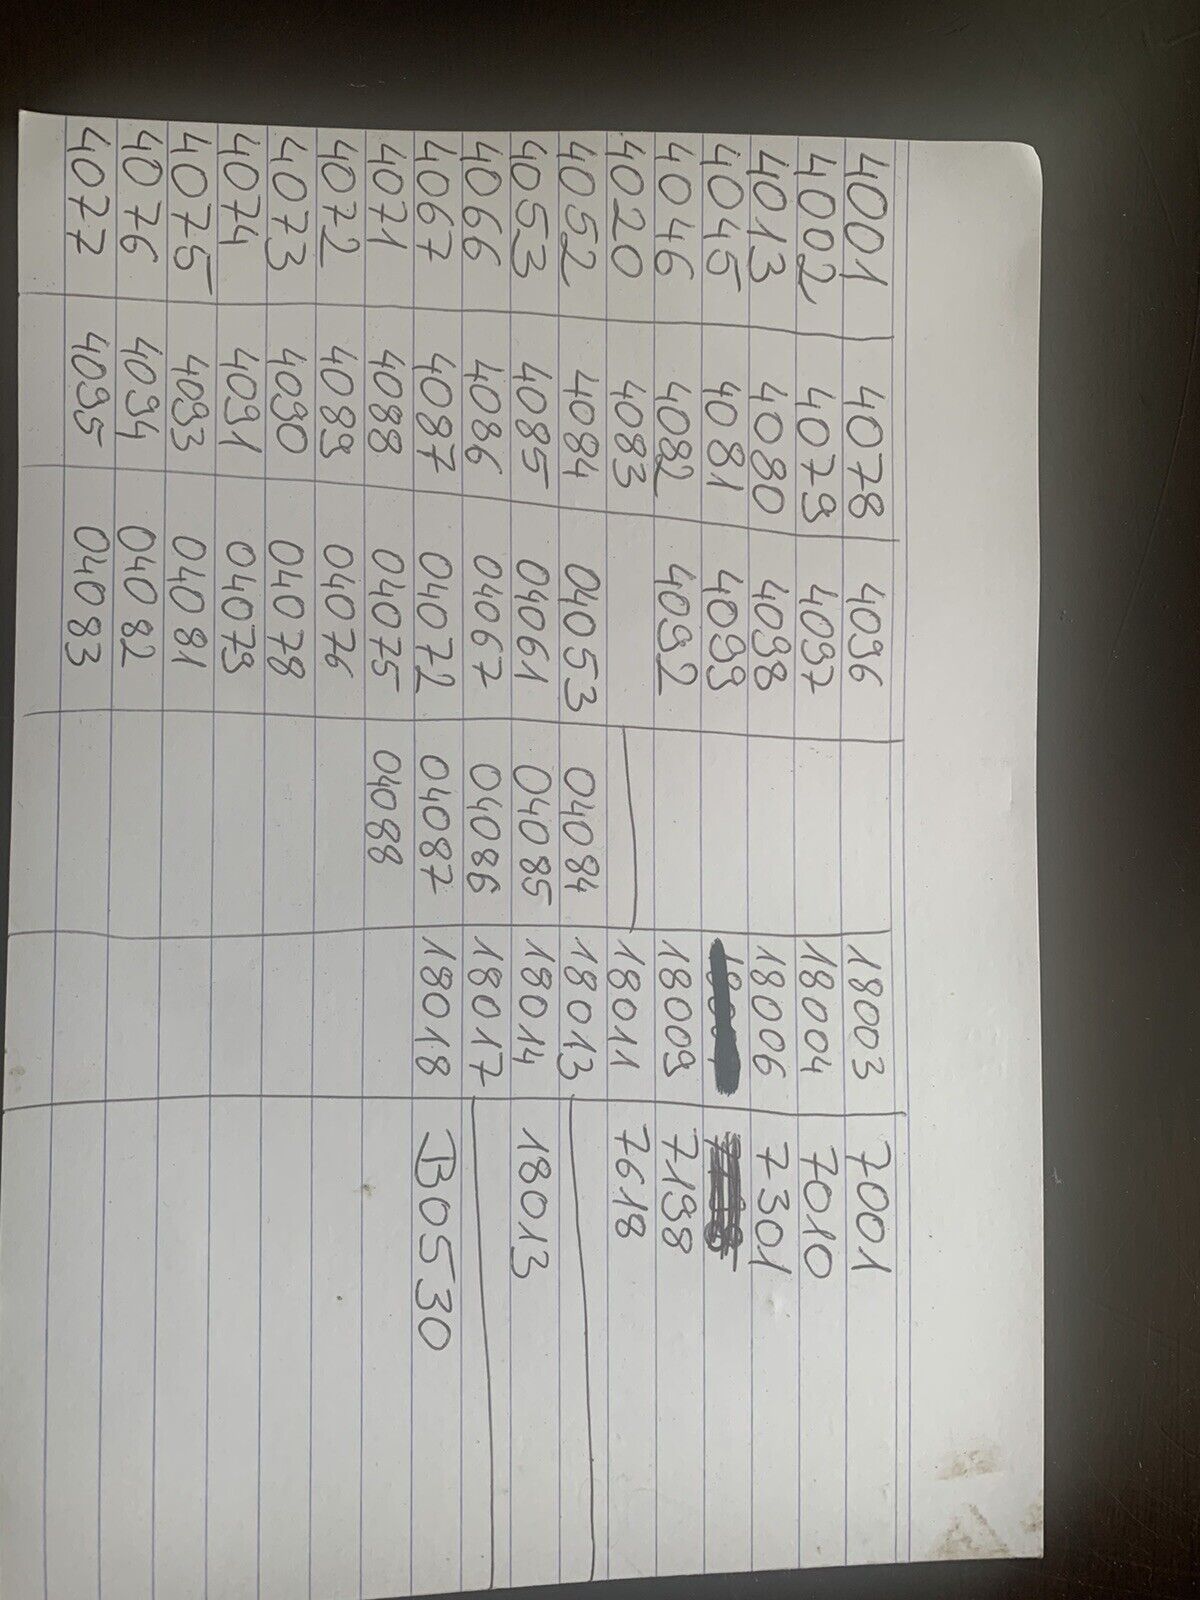 4001 4078 4096 18003 7001
4002 4079 4097 18004 7010
4013 4080 4098 18006 7301
4045 4081 4099
4046 4082 4092 18009 7198
4020 4083 18011 7618
4052 4084 04053 04084 18013
4053 4085 04061 04085 18014 18013
4066 4086 04067 04086 18017
4067 4087 04072 04087 18018 B05530
4071 4088 04075 04088
4072 4089 04076
4073 4090 04078
4074 4091 04079
4075 4093 04081
4076 4094 04082
4077 4095 04083